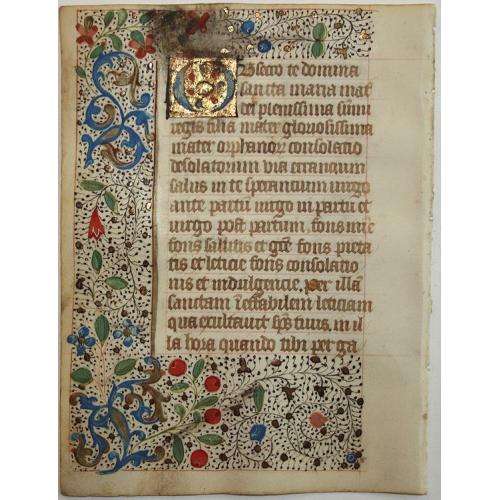 Obsecro te domina
sancta maria mat̄
dei plenissima sum̄i
regis filia mater gloriosissima
mater orphanoꝝ consolatio
desolatorum via errancium
salus in te sperancium uirgo
ante partū uirgo in partū et
uirgo post partum, fons mīe
fons salutis et grē fons pieta
tis et leticie fons consolatio
nis et indulgencie. per illā
sanctam īeffabilem leticiam
qua exultauit sp̄s tuus. in il
la hora quando tibi per ga